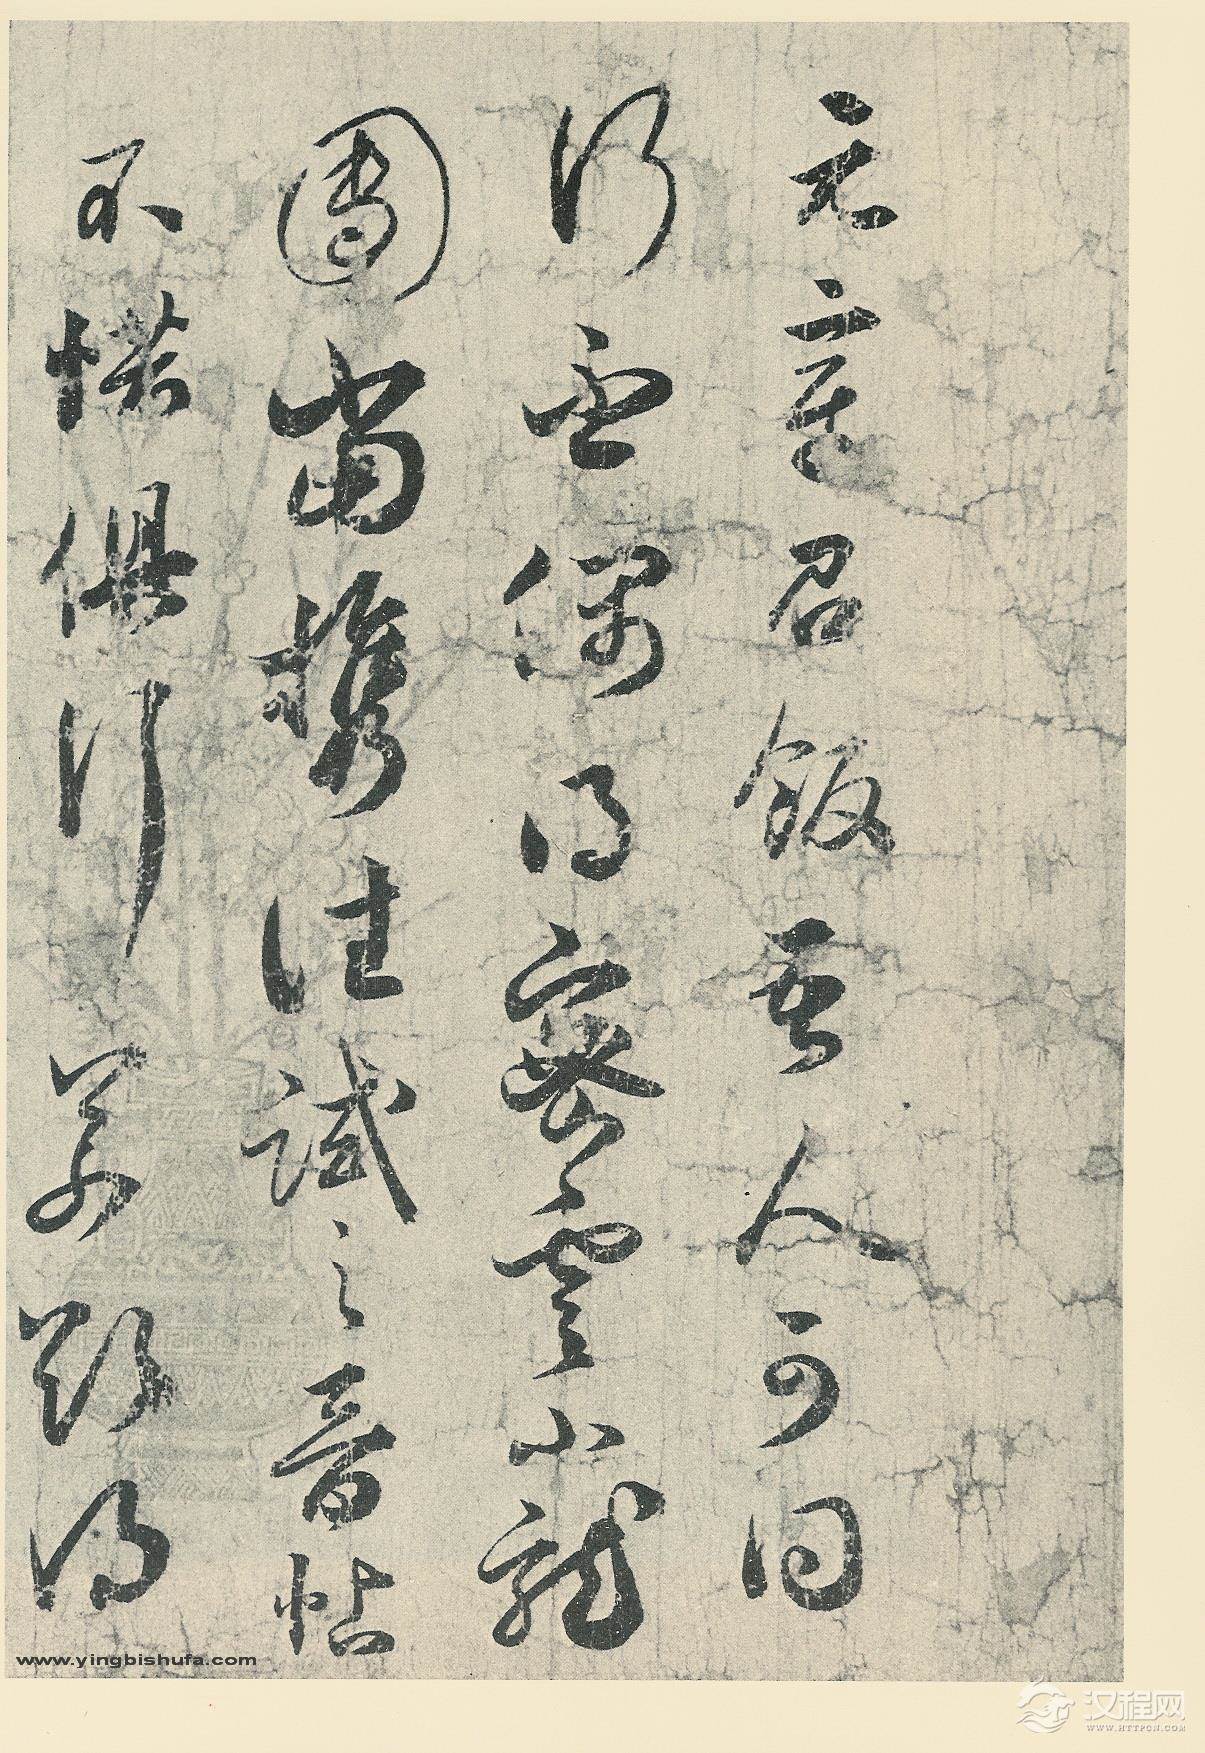 元章召飯吾人可同
行否偶得密雲小龍
團當攜往試之晉帖
不惜俱行為歎得
www.yingbishufa.com
汉程网
WWW.HTTPCN.COM